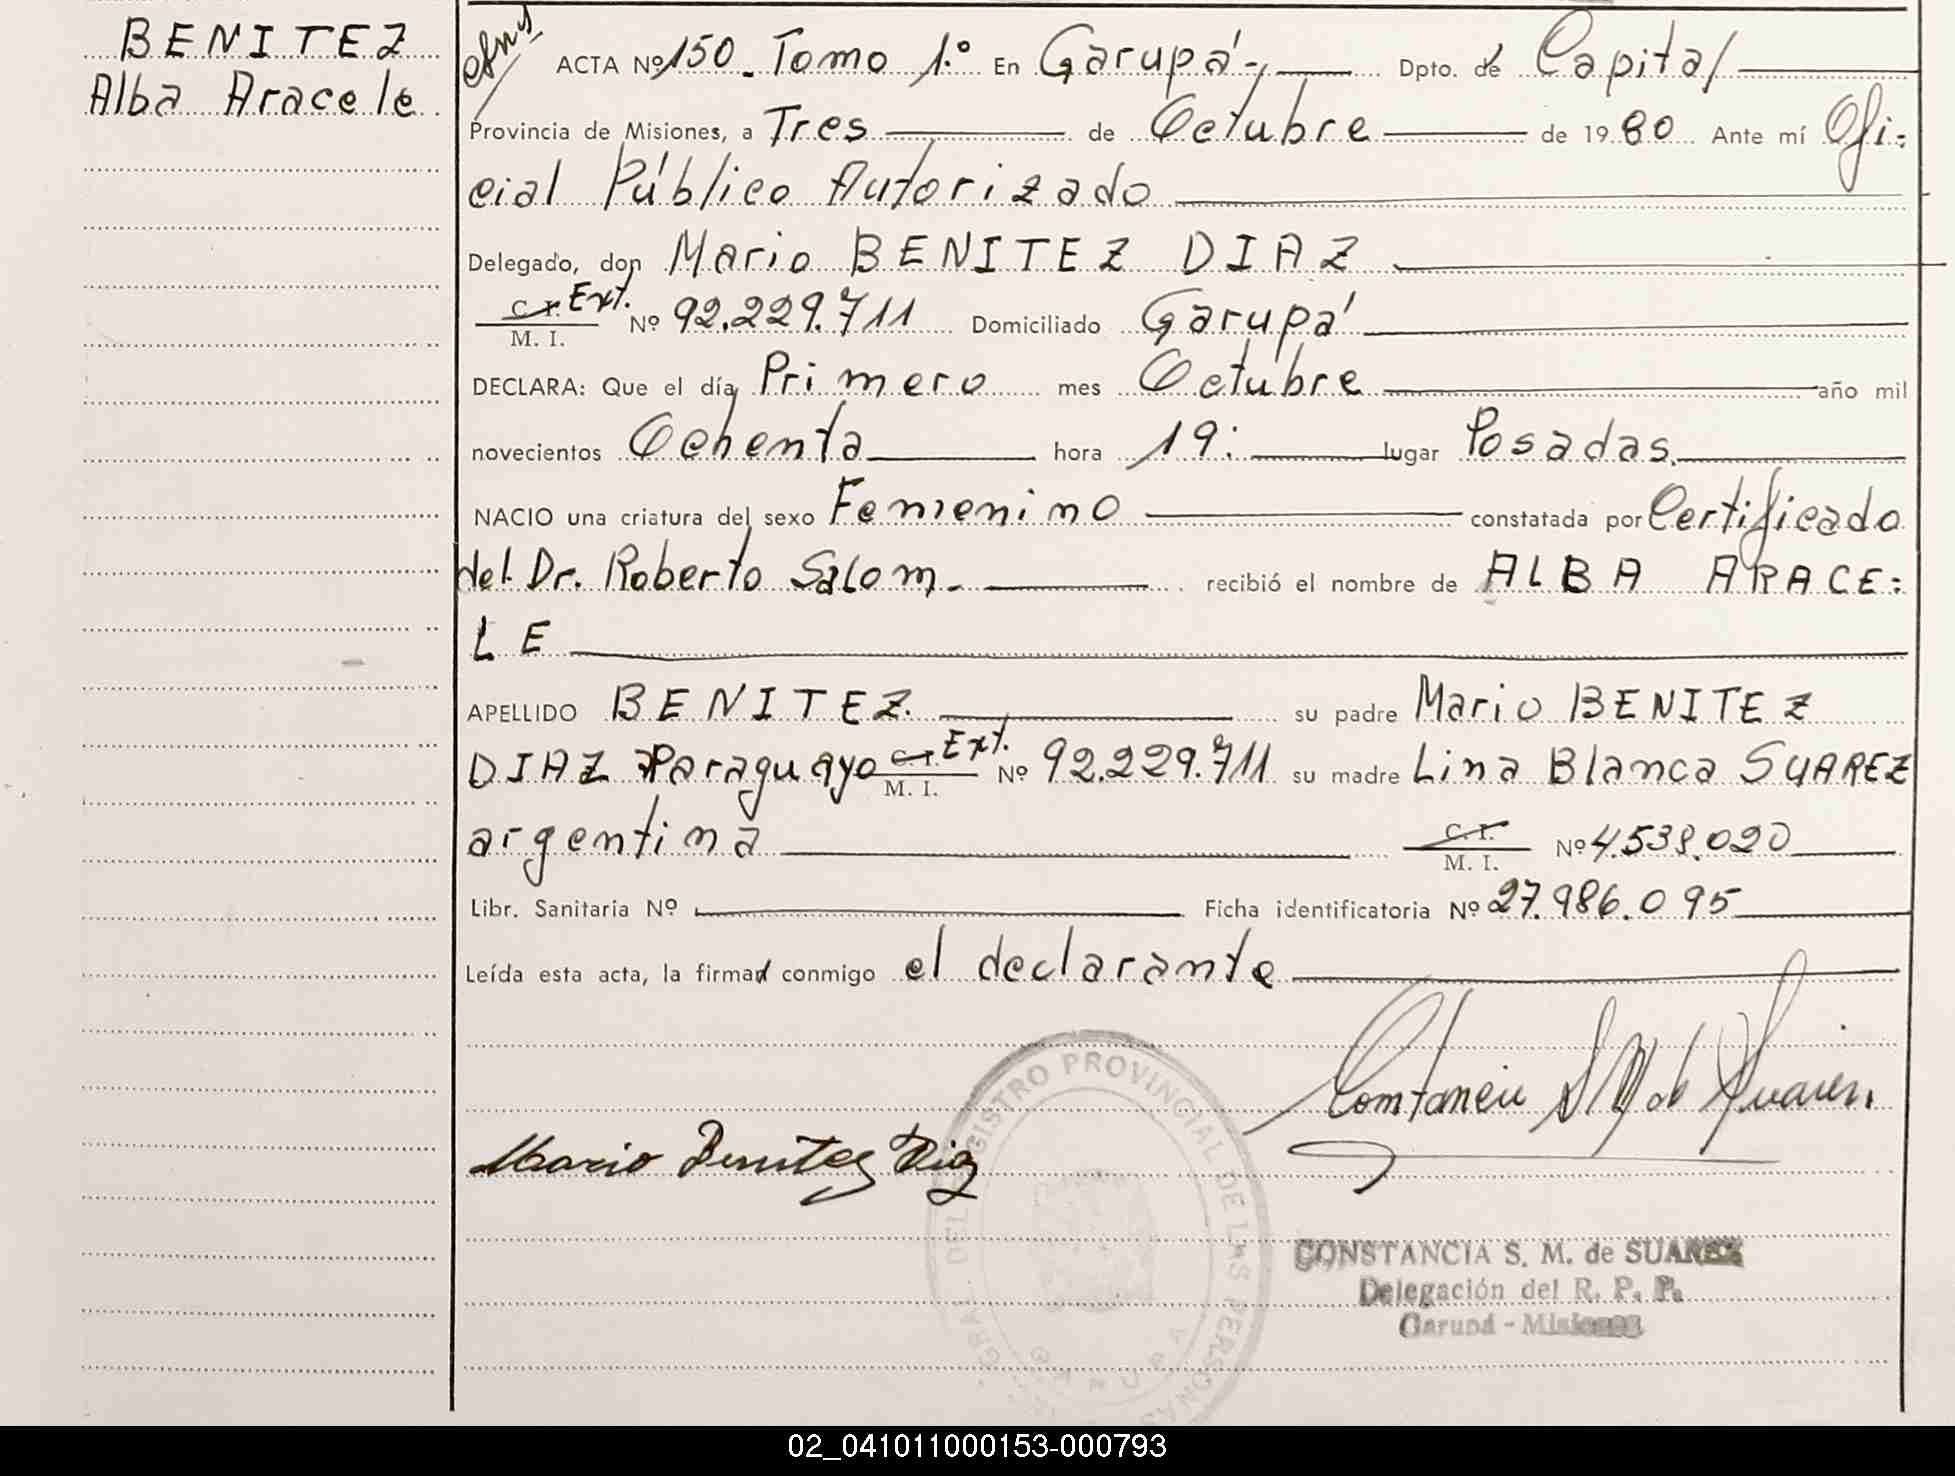 BENITEZ
Alba Aracele
ACTA Nº 150. Tomo 1.º En Garupá-, Dpto. de Capital
Provincia de Misiones, a Tres de Octubre de 1980 Ante mí Ofi:
cial Público Autorizado
Delegado, don Mario BENITEZ DIAZ
C. I. Ext.
M. I. Nº 92.229.711 Domiciliado Garupá
DECLARA: Que el día Primero mes Octubre año mil
novecientos Ochenta hora 19: lugar Posadas.
NACIO una criatura del sexo Femenino constatada por Certificado
del Dr. Roberto Salom. recibió el nombre de ALBA ARACE:
LE
APELLIDO BENITEZ. su padre Mario BENITEZ
DIAZ Paraguayo C. I. Ext. M. I. Nº 92.229.711 su madre Lina Blanca SUAREZ
argentina C. I. M. I. Nº 4.538.020
Libr. Sanitaria Nº Ficha identificatoria Nº 27.986.095
Leída esta acta, la firman conmigo el declarante
Constancia S M de Suarez.
Mario Benitez Diaz
GRAL. DEL REGISTRO PROVINCIAL DE LAS PERSONAS
CONSTANCIA S. M. de SUAREZ
Delegación del R. P. P.
Garupá - Misiones
02_041011000153-000793